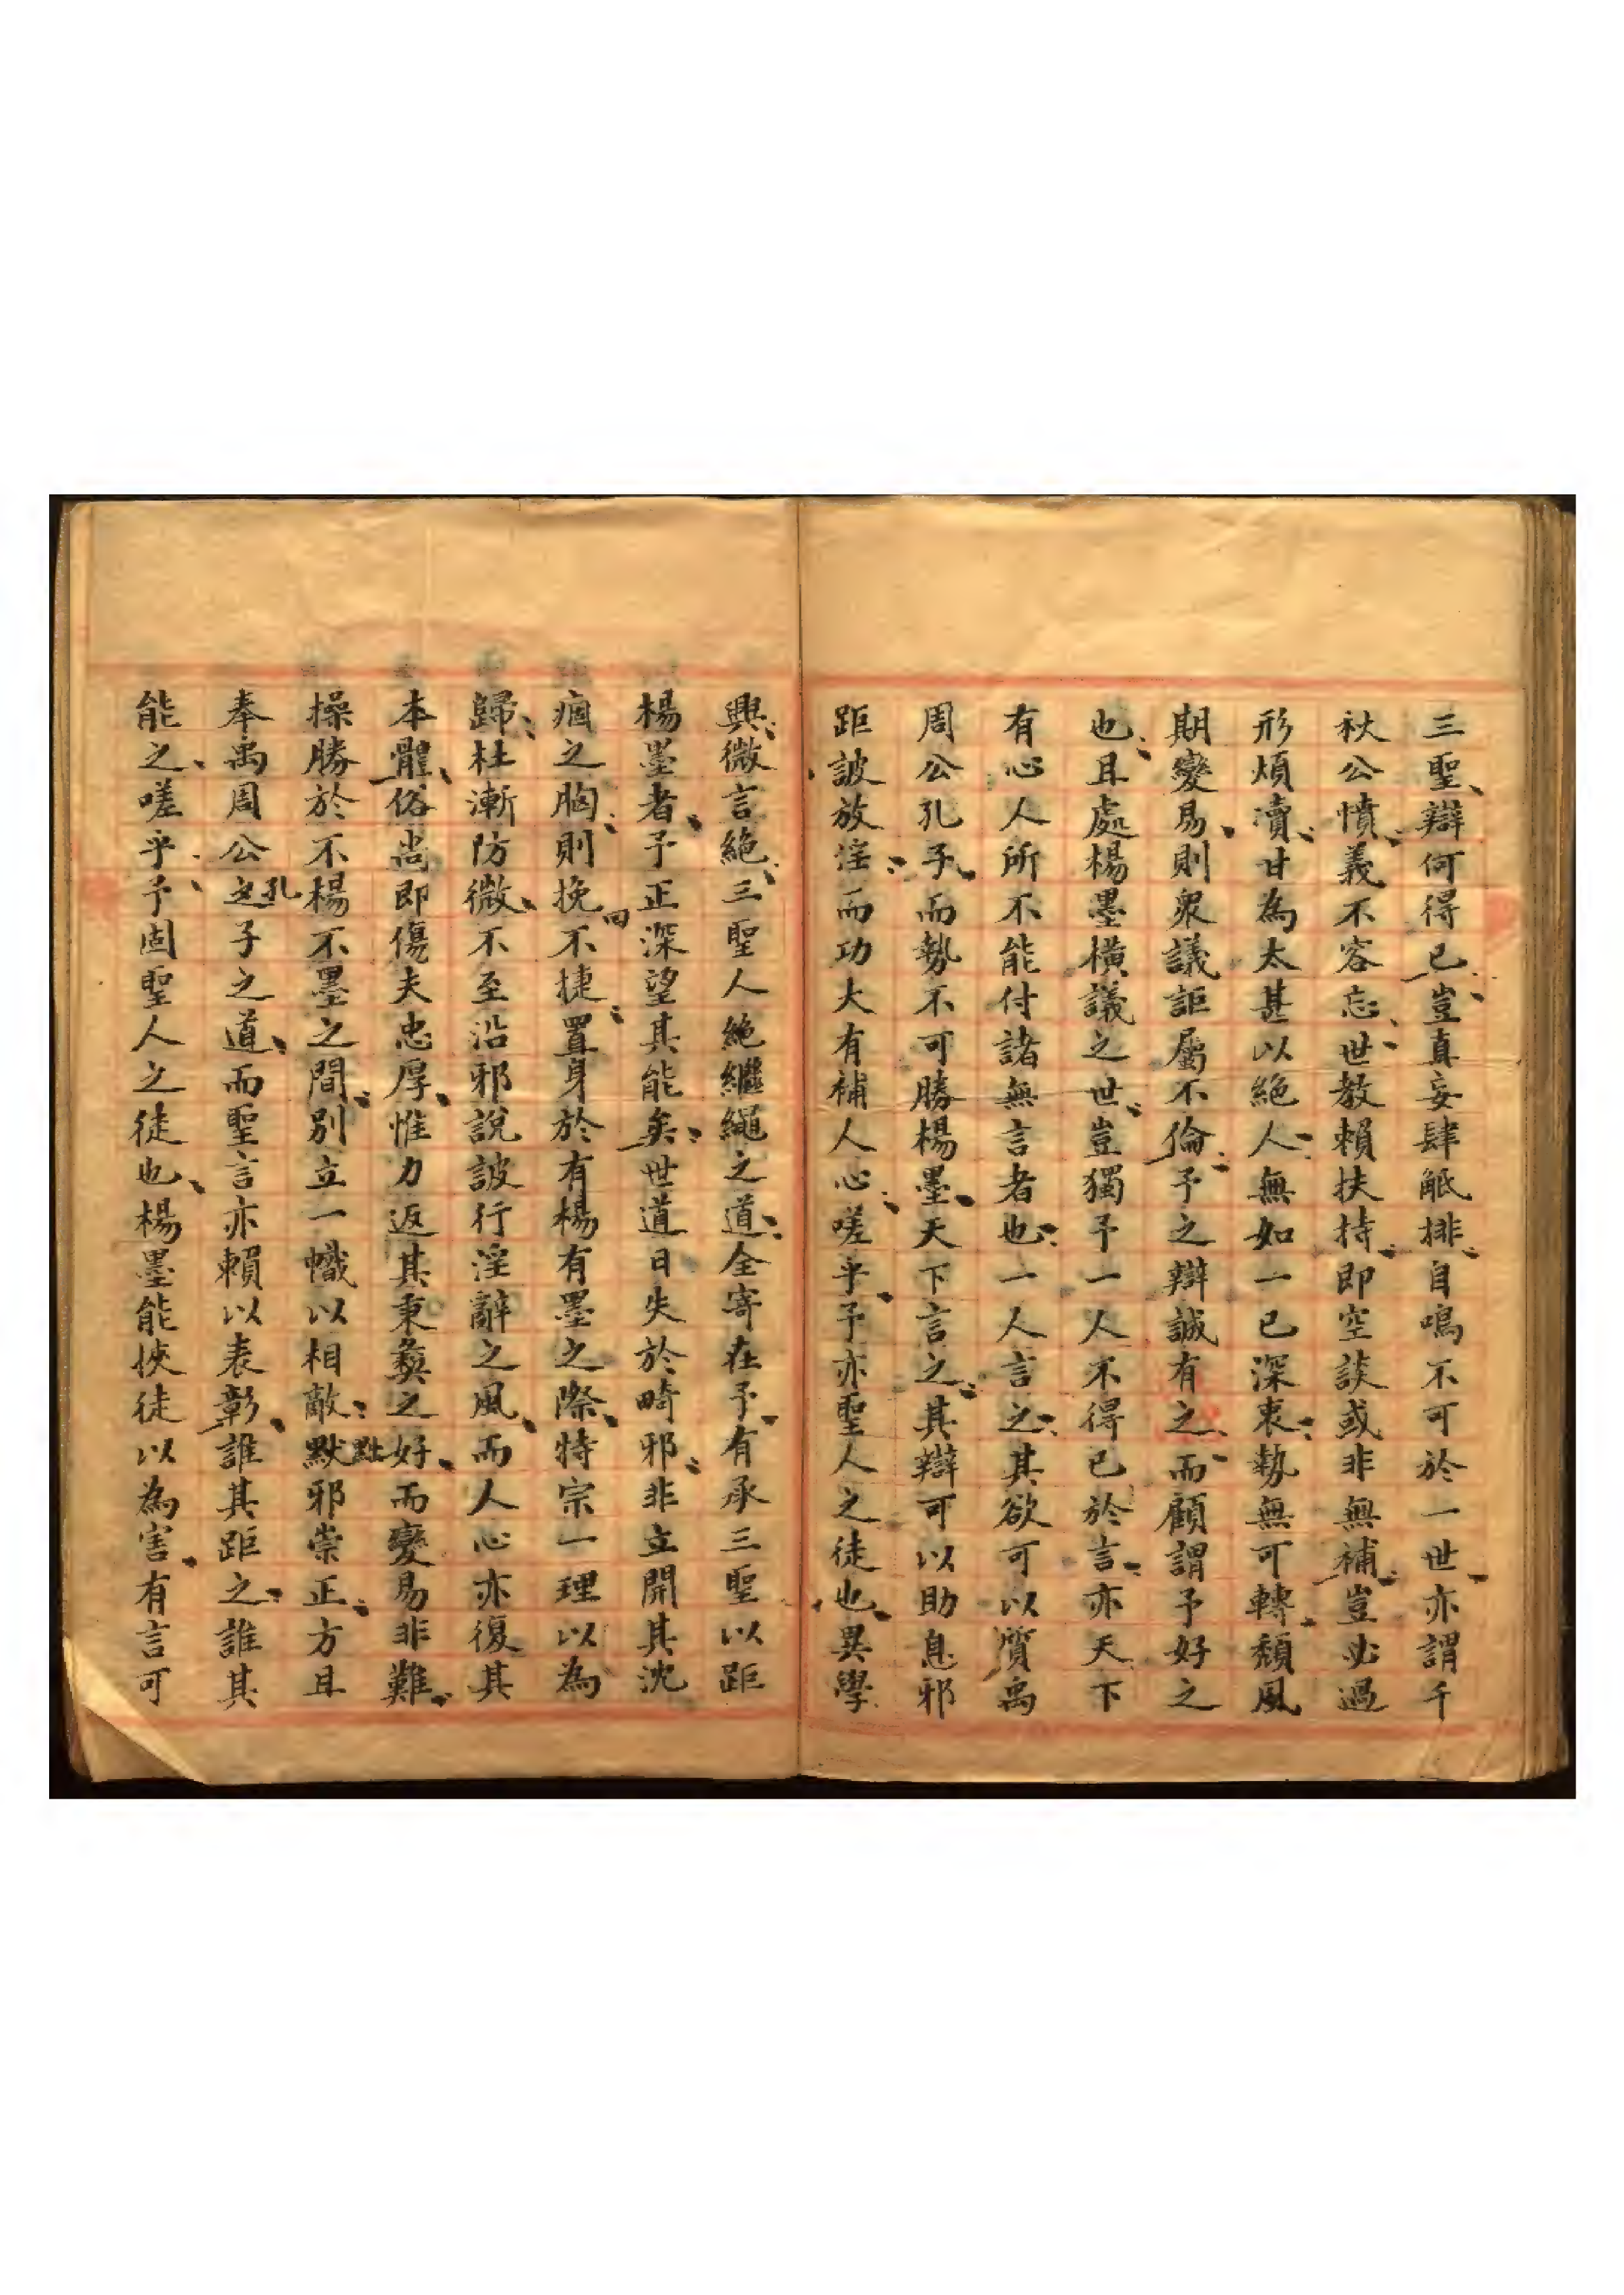 三聖辯何得已豈真妄肆觝排自鳴不可於一世亦謂千
秋公憤義不容忘世教賴扶持即空談或非無補豈必過
形煩瀆甘為太甚以絕人無如一已深衷勢無可轉頹風
期變易則衆議詎屬不倫予之辯誠有之而顧謂予好之
也且處楊墨橫議之世豈獨予一人不得已於言亦天下
有心人所不能付諸無言者也一人言之其欲可以質禹
周公孔子而勢不可勝楊墨天下言之其辯可以助息邪
距詖放淫而功大有補人心嗟乎予亦聖人之徒也異學
興微言絕三聖人絕繼繩之道全寄在予有承三聖以距
楊墨者予正深望其能矣世道日失於畸邪非立開其沈
痼之胸則挽回不捷置身於有楊有墨之際特宗一理以為
歸杜漸防微不至沿邪說詖行淫辭之風而人心亦復其
本體俗尚即傷夫忠厚惟力返其秉彝之好而變易非難
操勝於不楊不墨之間別立一幟以相敵默黜邪崇正方且
奉禹周公孔子之道而聖言亦賴以表彰誰其距之誰其
能之嗟乎予固聖人之徒也楊墨能挾徒以為害有言可